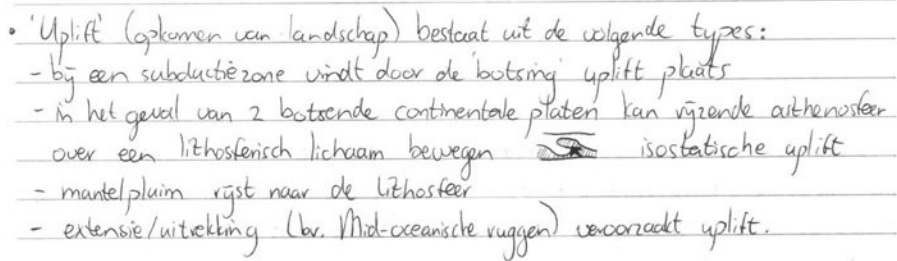 • 'Uplift' (opkomen van landschap) bestaat uit de volgende types:
- bij een subductiezone vindt door de 'botsing' uplift plaats
- in het geval van 2 botsende continentale platen kan rijzende asthenosfeer
over een lithosferisch lichaam bewegen isostatische uplift
- mantelpluim rijst naar de lithosfeer
- extensie/uitrekking (bv. Mid-oceanische ruggen) veroorzaakt uplift.